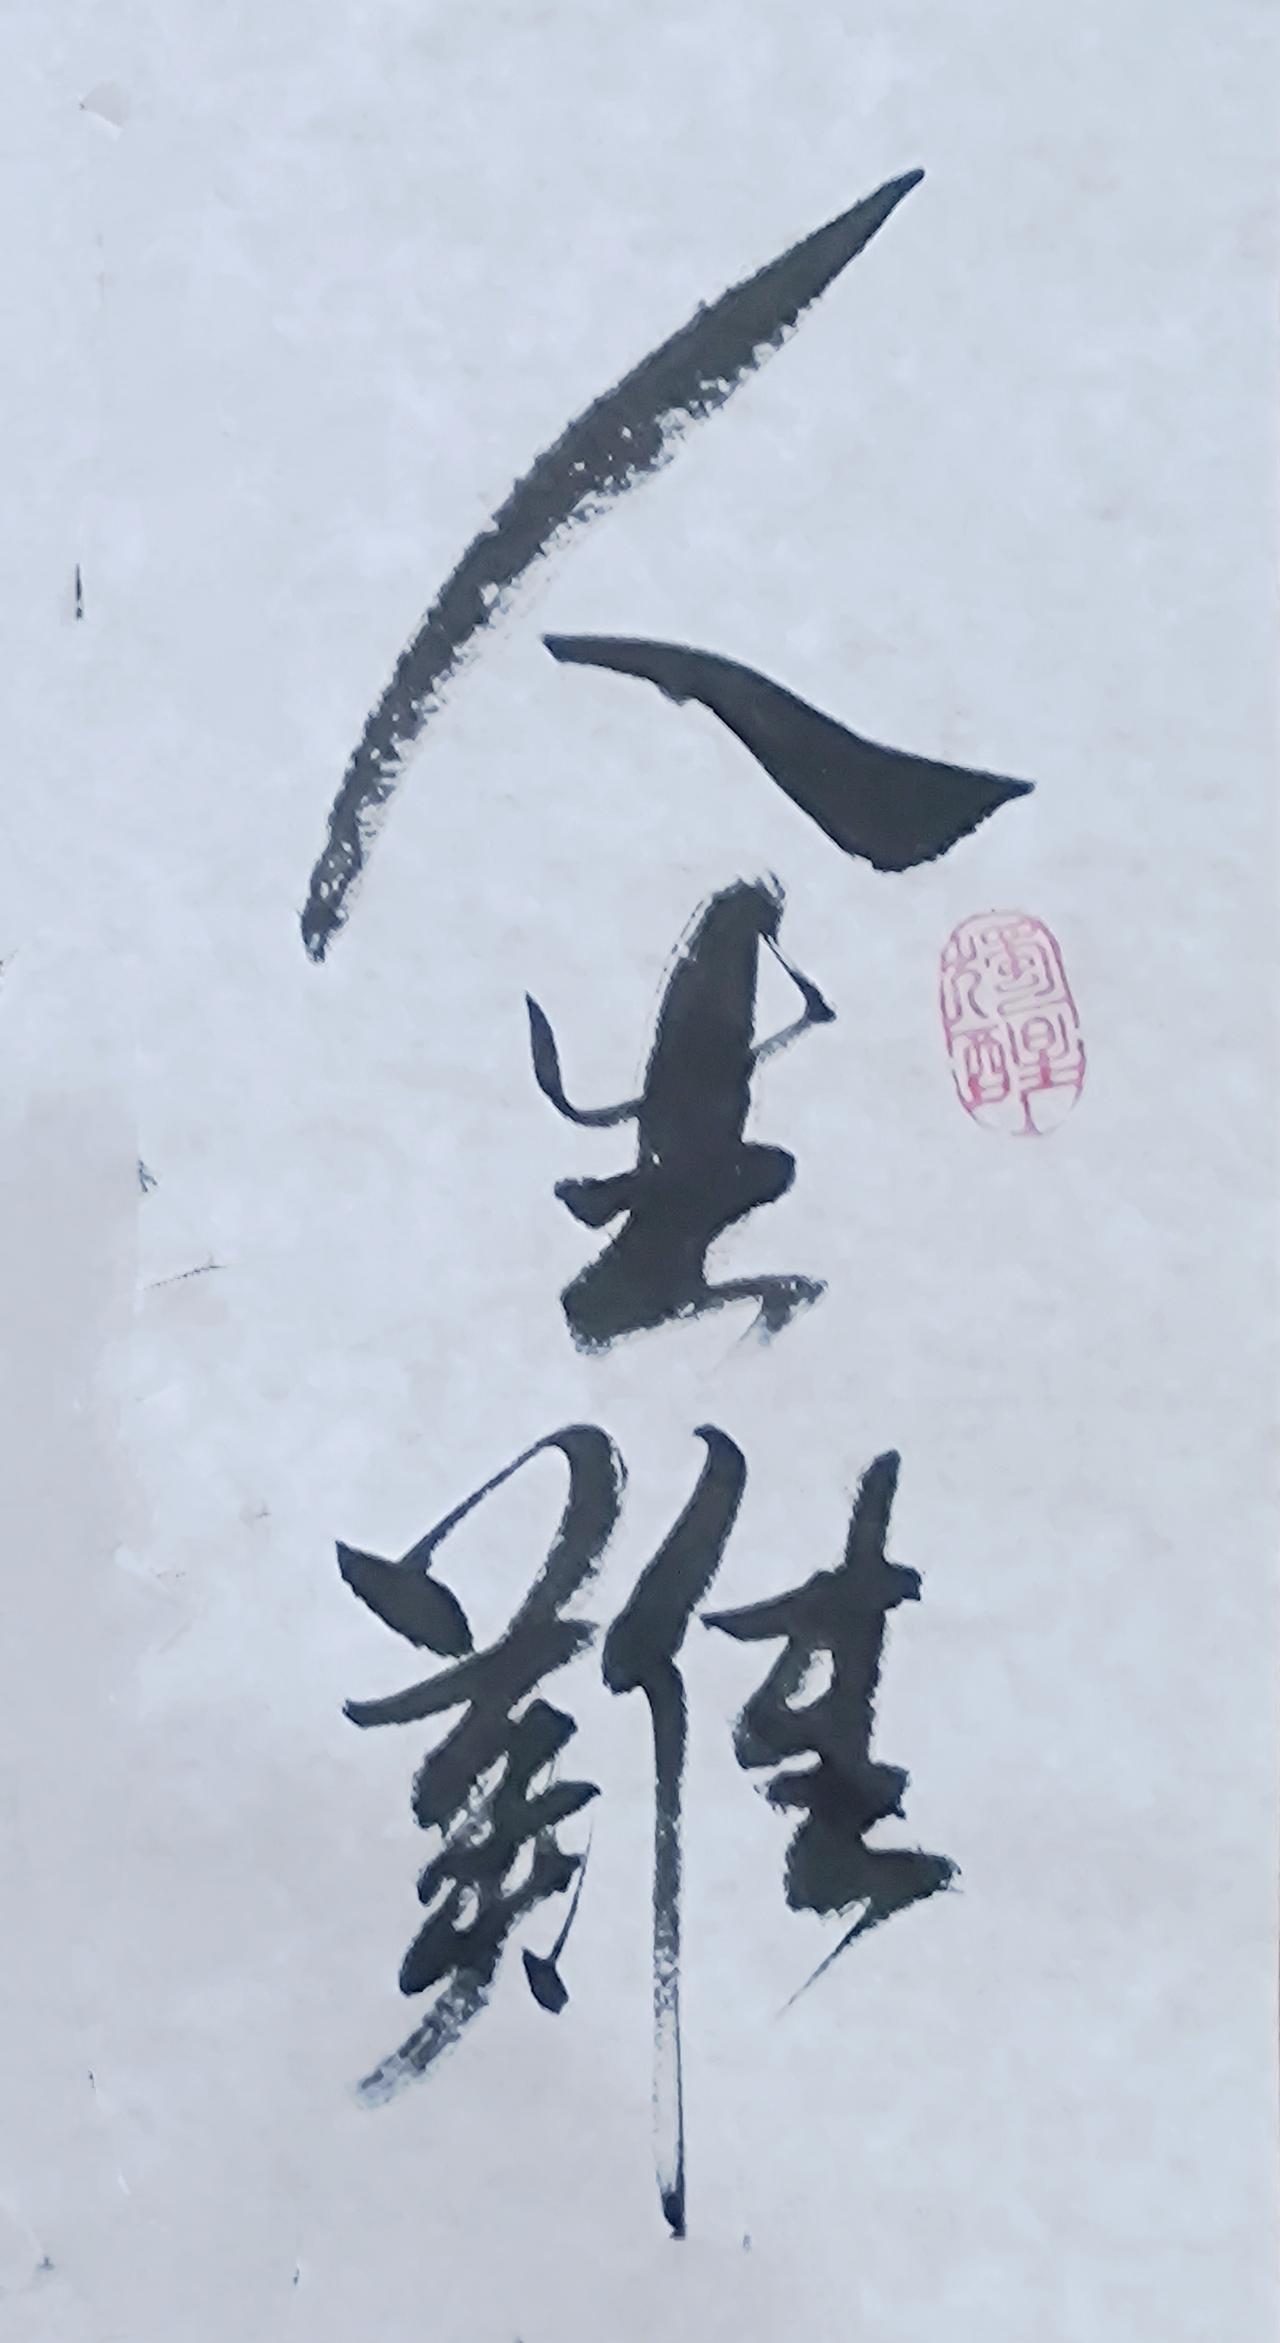 人生難